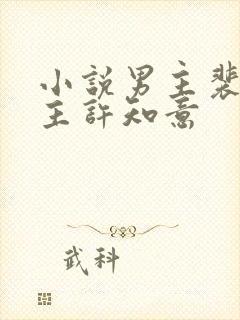 小說男主裴
主許知意
武科